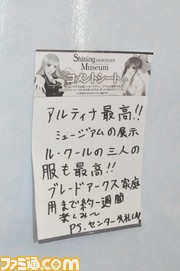 Shining
Museum
コメントシート
アルティナ最高!!
ミュージアムの展示
ル・クールの三人の
服も最高!!
ブレードアークス家庭
用まで約一週間
楽しみ〜
P.S.センター失礼(笑)
ファミ通.com